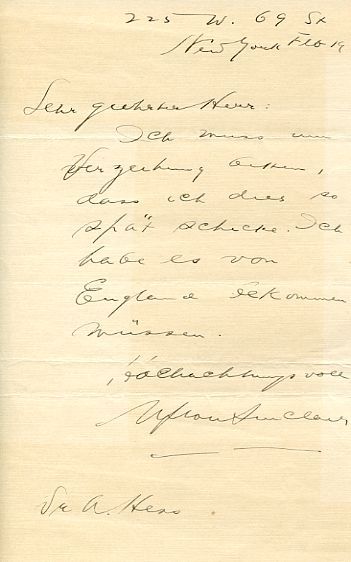 225 W. 69 St
New York Feb 19
Sehr geehrter Herr:
Ich muss um
Verzeihung bitten,
dass ich dies so
spät schicke. Ich
habe es von
England bekommen
müssen.
Hochachtungsvoll
Upton Sinclair
Dr A. Hess